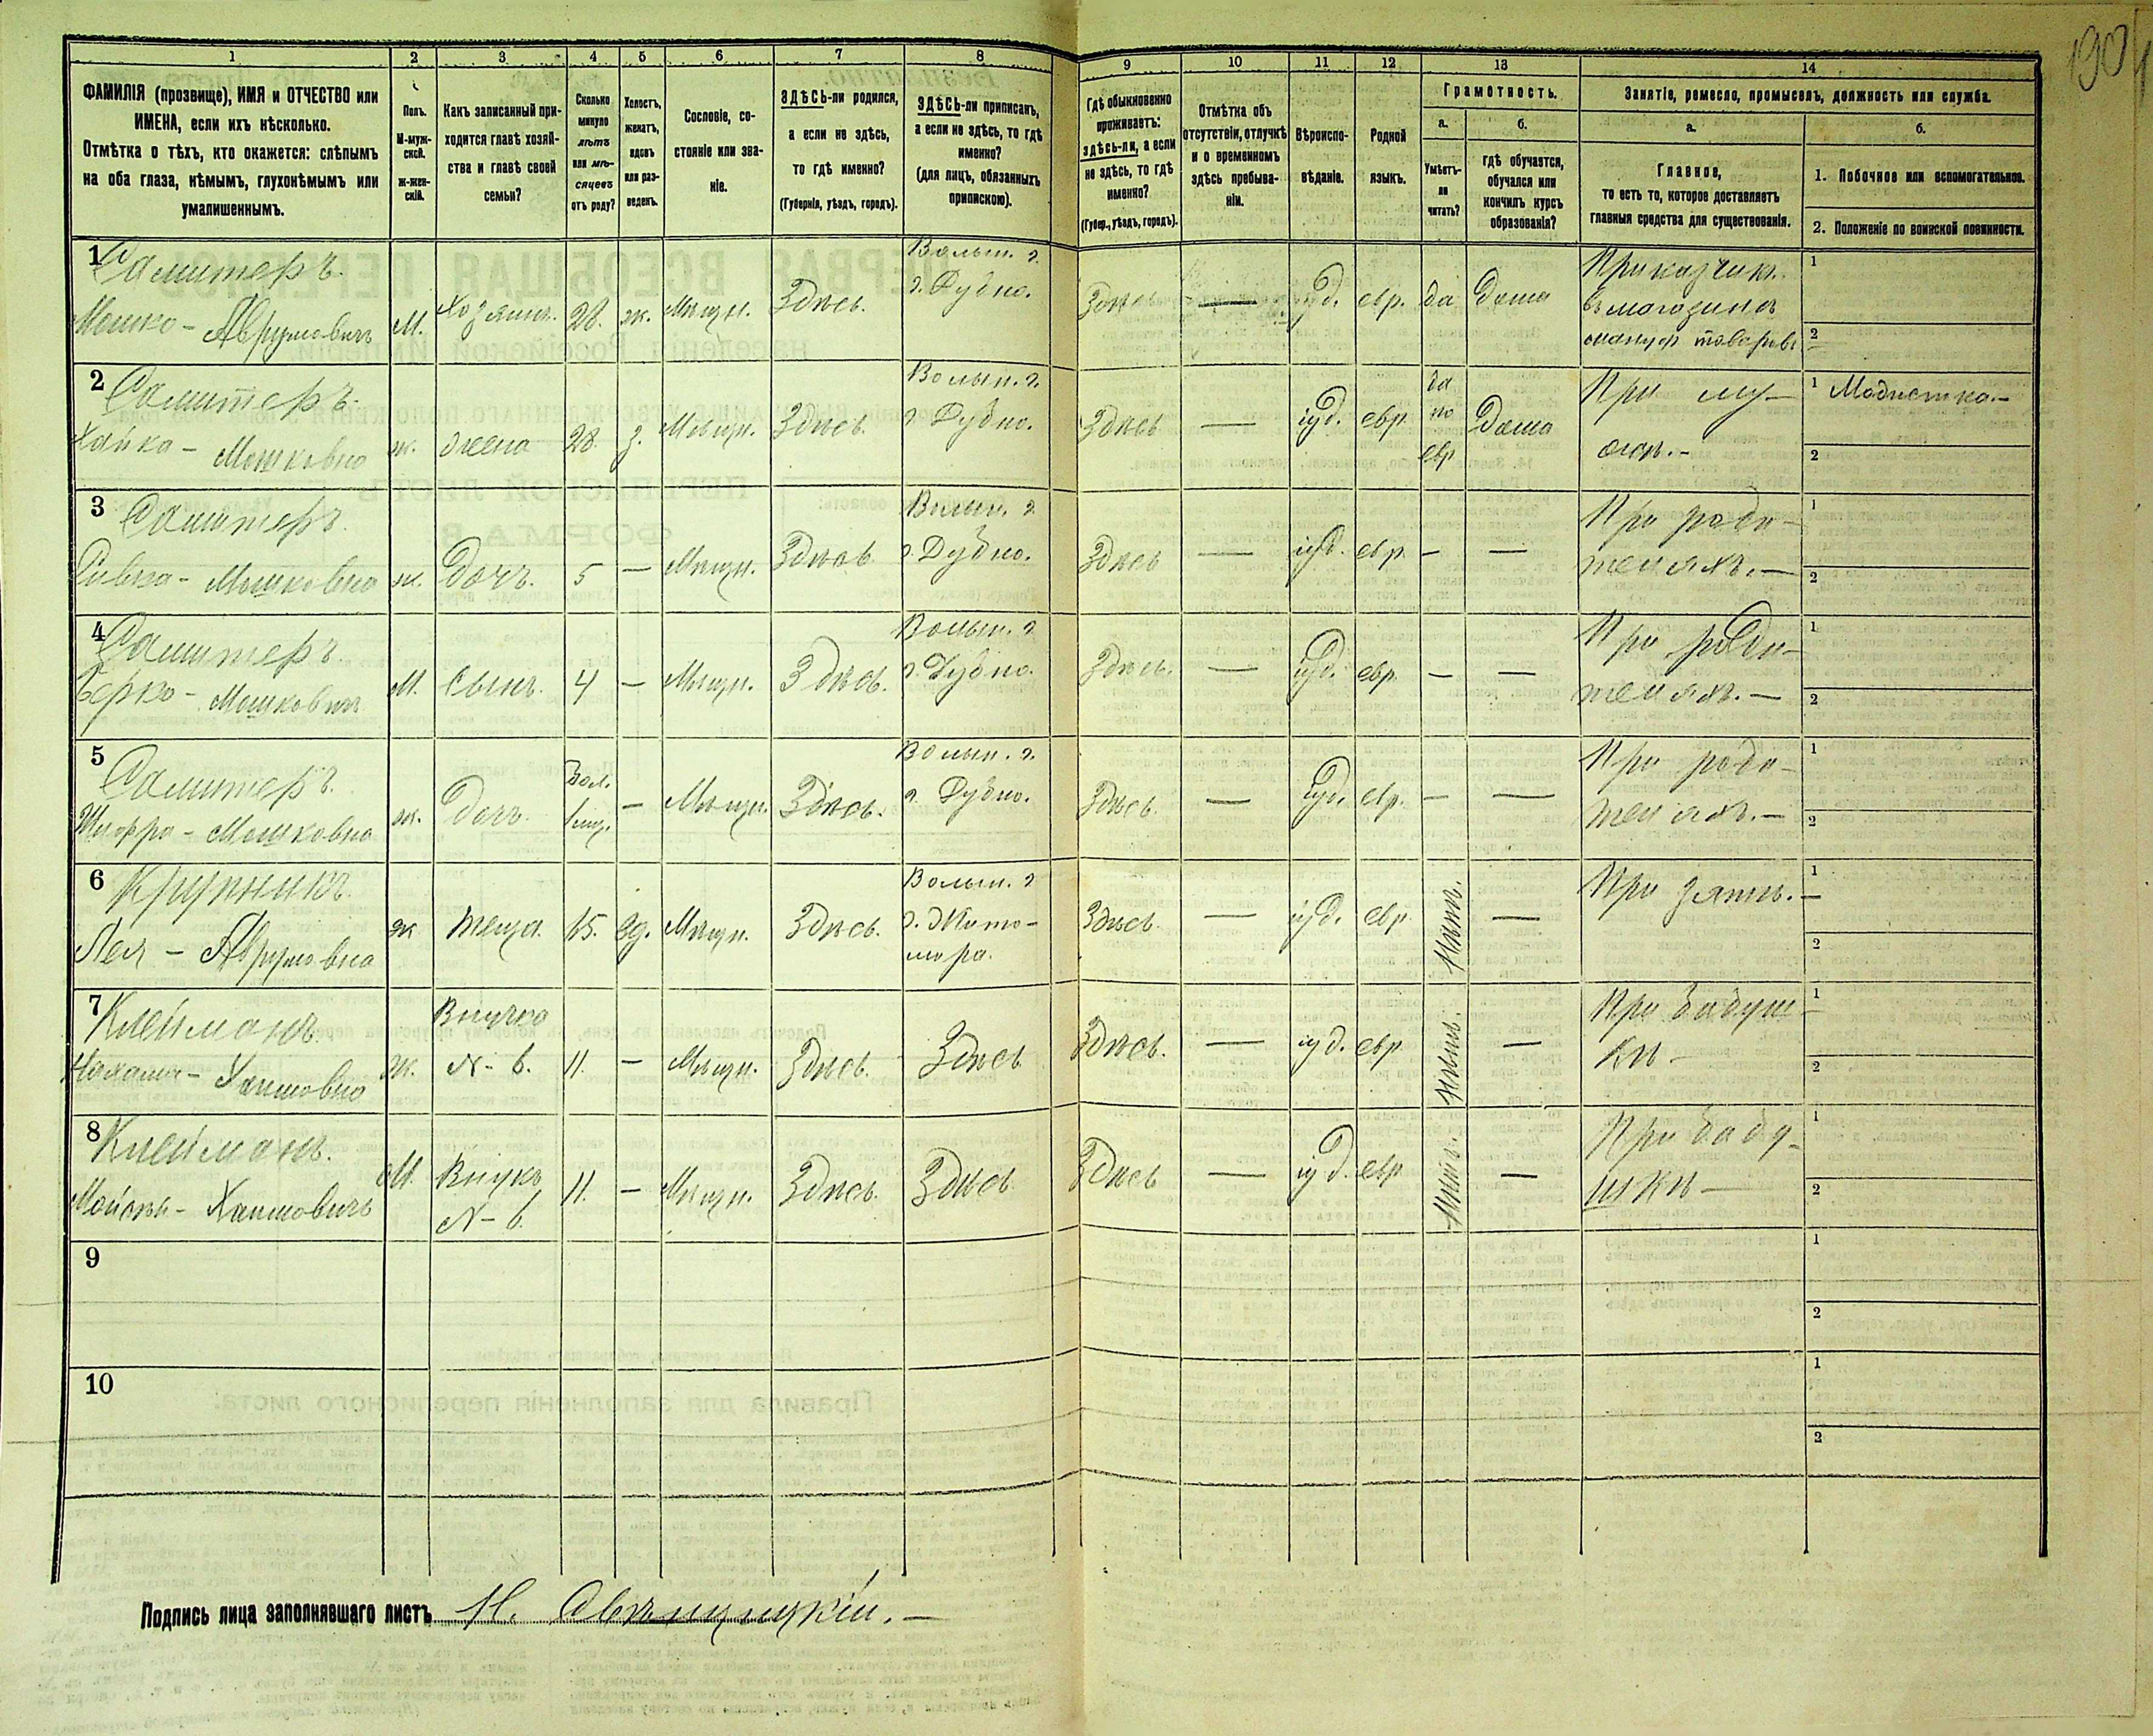 190
1 2 3 4 5 6 7 8 9 10 11 12 13 14
ФАМИЛІЯ (прозвище), ИМЯ и ОТЧЕСТВО или
ИМЕНА, если ихъ нѣсколько.
Отмѣтка о тѣхъ, кто окажется: слѣпымъ
на оба глаза, нѣмымъ, глухонѣмымъ или
умалишеннымъ.
Полъ.
М-муж-
ской.
Ж-жен-
скій.
Какъ записанный при-
ходится главѣ хозяй-
ства и главѣ своей
семьи?
Сколько
минуло
лѣтъ
или мѣ-
сяцевъ
отъ роду?
Холостъ,
женатъ,
вдовъ
или раз-
веденъ.
Сословіе, со-
стояніе или зва-
ніе.
ЗДѢСЬ-ли родился,
а если не здѣсь,
то гдѣ именно?
(Губернія, уѣздъ, городъ).
ЗДѢСЬ-ли приписанъ,
а если не здѣсь, то гдѣ
именно?
(для лицъ, обязанныхъ
припискою).
Гдѣ обыкновенно
проживаетъ:
здѣсь-ли, а если
не здѣсь, то гдѣ
именно?
(Губер., уѣздъ, городъ).
Отмѣтка объ
отсутствіи, отлучкѣ
и о временномъ
здѣсь пребыва-
ніи.
Вѣроиспо-
вѣданіе.
Родной
языкъ.
Грамотность.
а.
Умѣетъ-
ли
читать?
б.
Гдѣ обучается,
обучался или
кончилъ курсъ
образованія?
Занятіе, ремесло, промыселъ, должность или служба.
а.
Главное,
то есть то, которое доставляетъ
главныя средства для существованія.
б.
1. Побочное или вспомогательное.
2. Положеніе по воинской повинности.
1
Мошко - Аврумовичъ
М. Хозяинъ. 28. ж. Мѣщн. Здѣсь.
Волын. г.
г. Дубно.
Здѣсь — іуд. евр. да Дома
Приказчикъ
въ магазинѣ
мануф товаровъ
1
2
2
Хайка - Мошковна
ж. жена 28. з. Мѣщн. Здѣсь.
Волын. г.
г. Дубно.
Здѣсь — іуд. евр.
да
по
евр
Дома
При му-
жѣ. -
1 Модистка. -
2
3
Ривка - Мошковна
ж. Дочь. 5 — Мѣщн. Здѣсь
Волын. г
г. Дубно.
Здѣсь — іуд. евр. — —
При роди-
теляхъ. —
1
2
4
Берко - Мошковичъ
М. Сынъ. 4 — Мѣщн. Здѣсь.
Волын. г
г. Дубно.
Здѣсь. — іуд. евр. — —
При роди-
теляхъ. —
1
2
5
Шифра - Мошковна
ж. Дочь.
1 мѣц. — Мѣщн. Здѣсь.
Волын. г.
г. Дубно.
Здѣсь. — іуд. евр. — —
При роди-
теляхъ. —
1
2
6 Крупникъ.
Лея - Аврумовна
ж теща. вд. Мѣщн. Здѣсь.
Волын. г
г. Жито-
мира.
Здѣсь. — іуд. евр. Нѣтъ. —
При зятѣ. —
1
2
7 Клейманъ.
Нахама - Хаимовна
Ж.
Внучка
N - 6.
11. — Мѣщн. Здѣсь. Здѣсь
Здѣсь. — іуд. евр Нѣтъ. —
При бабуш-
кѣ -
1
2
8 Клейманъ.
Хаимовичъ
М.
Внукъ
N - 6
11. — Мѣщн. Здѣсь. Здѣсь.
Здѣсь — іуд. евр Нѣтъ. —
При бабу-
шкѣ —
1
2
9
1
2
10
1
2
Подпись лица заполнявшаго листъ